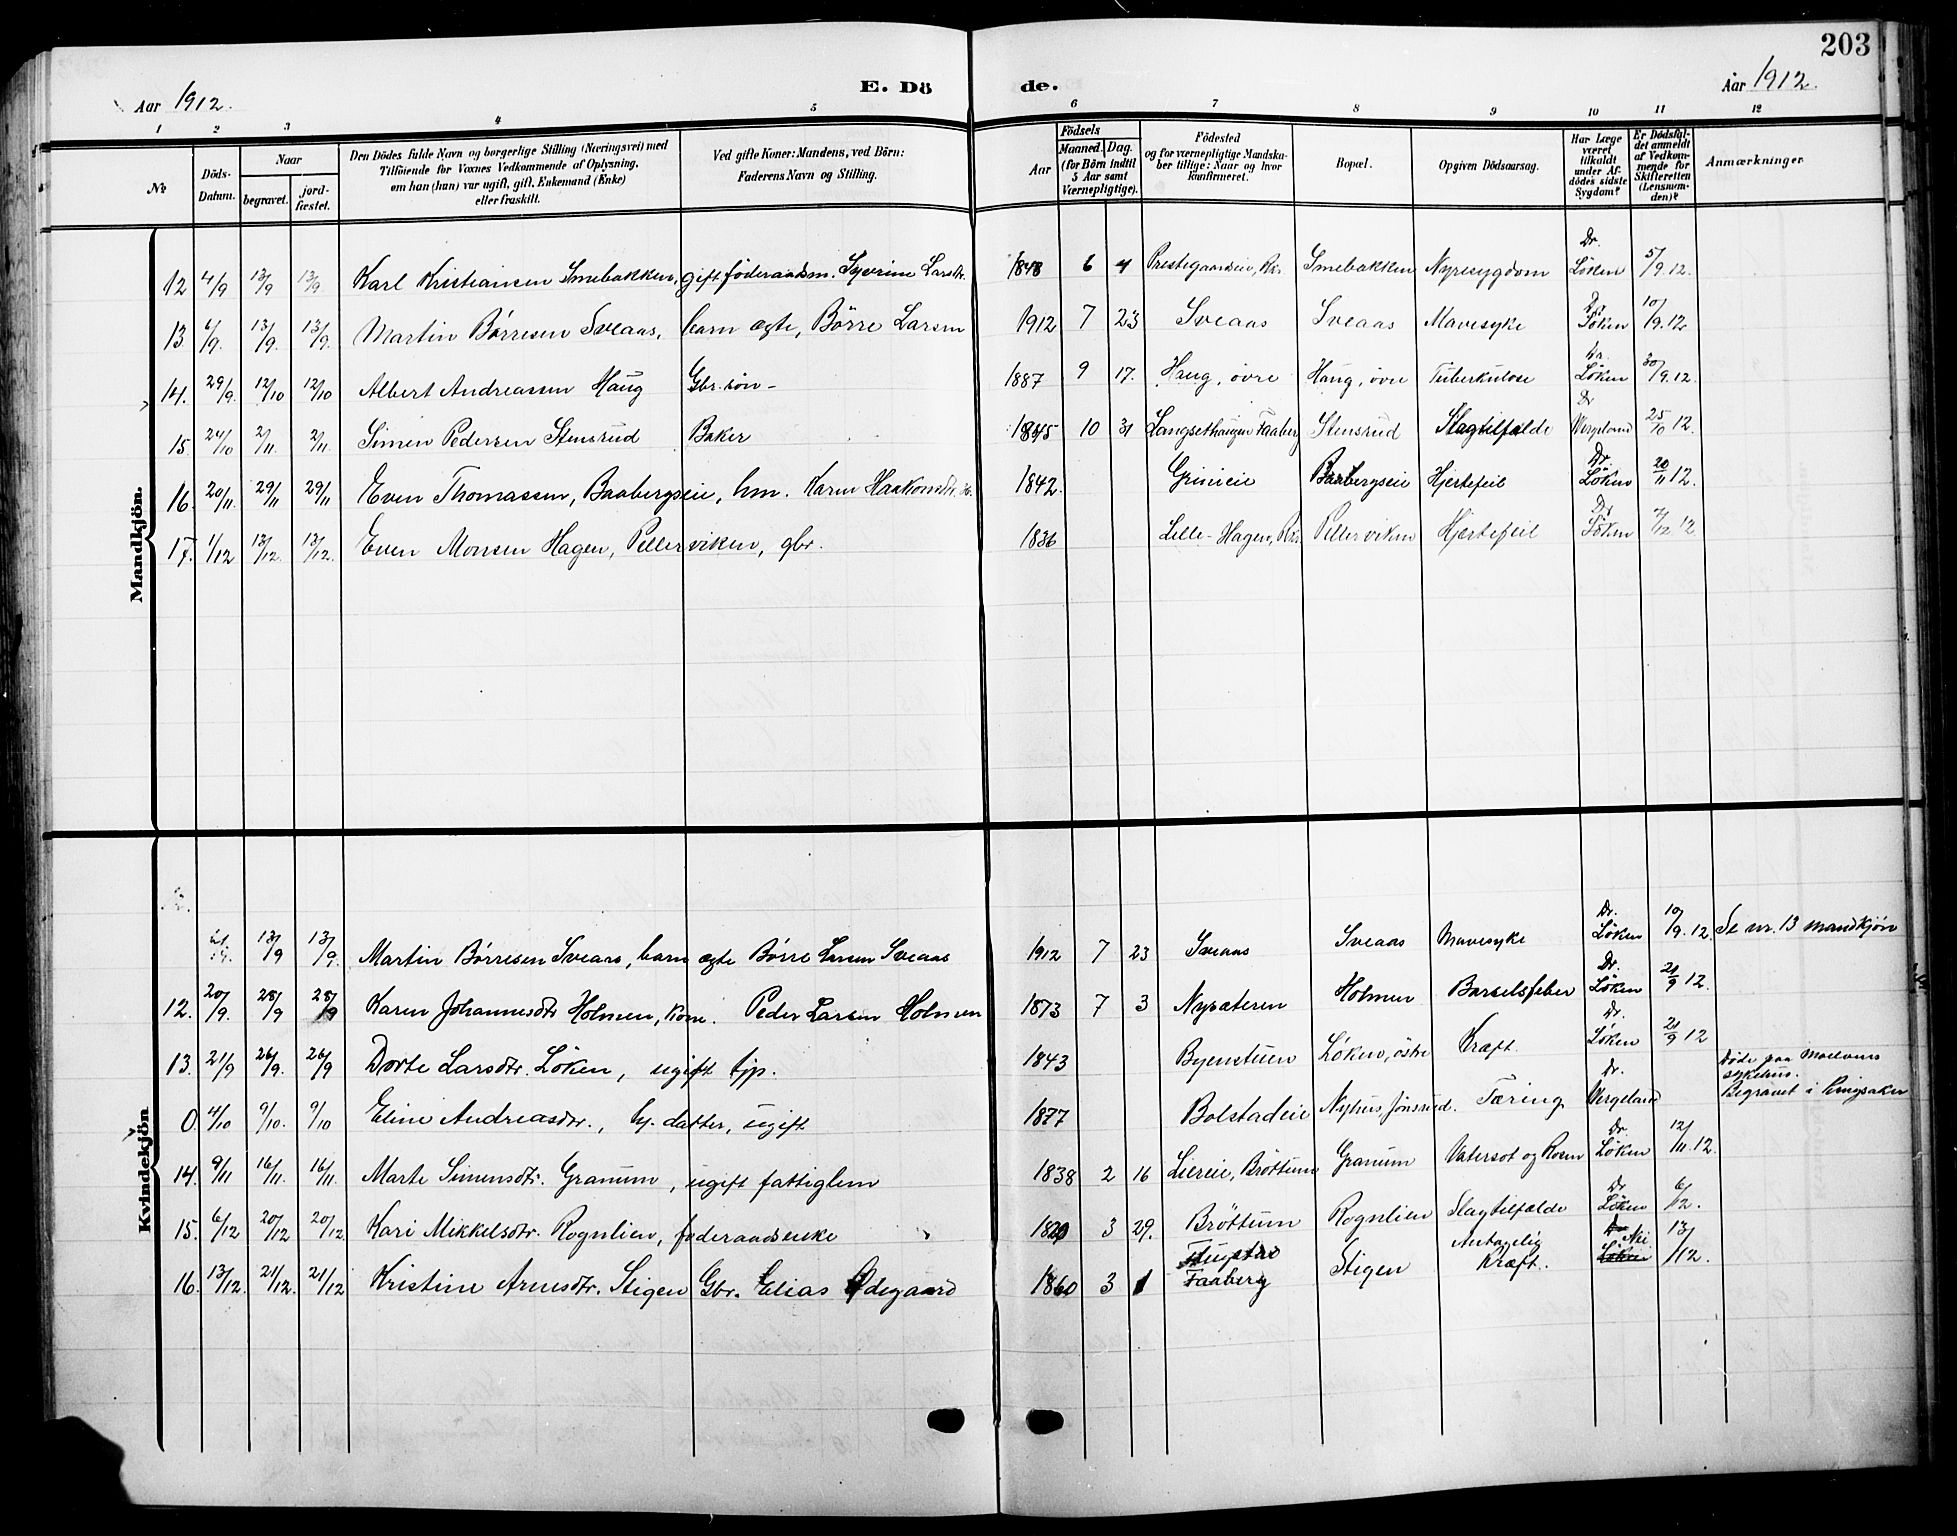 203
Aar 1912.
E. Dö de.
Aar 1912.
1 2 3 4 5 6 7 8 9 10 11 12
No
Döds-Datum.
Naar
begravet.
jord-fæstet.
Den Dödes fulde Navn og borgerlige Stilling (Næringsvei) med
Tilföiende for Voxnes Vedkommende af Oplysning,
om han (hun) var ugift, gift, Enkemand (Enke)
eller fraskilt.
Ved gifte Koner: Mandens, ved Börn:
Faderens Navn og Stilling.
Födsels
Aar
Maaned. Dag.
(for Börn indtil
5 Aar samt
Værnepligtige).
Födested
og for værnepligtige Mandska-
ber tillige: Naar og hvor
konfirmeret.
Bopæl.
Opgiven Dödsaarsag.
Har Læge
været
tilkaldt
under Af-
dödes sidste
Sygdom?
Er Dödsfal-
det anmeldt
af Vedkom-
mende for
Skifteretten
(Lensman-
den)?
Anmærkninger
Mandkjön.
12 4/9 13/9 13/9 Karl Kristiansen Smebakken, gift föderaadsm. Syverine Larsdtr. 1848 6 4 Smebakken Nyresygdom Dr. Løken 5/9.12.
13. 6/9. 13/9. 13/9. Martin Børresen Sveaas, barn ægte, Børre Larsen 1912 7 23 Sveaas Sveaas Mavesyke Dr. Løken 10/9.12
14. 29/9. 12/10 12/10 Albert Andreassen Haug Gbr. søn - 1887 9 17. Haug, övre Haug, övre Tuberkulose Dr. Løken 30/9.12.
15. 24/10 2/11. 2/11. Simen Pedersen Stensrud Baker 1845 10 31 Langsethaugen Faaberg Stensrud Slagtilfælde Dr Vergeland 25/10 12.
16. 20/11. 29/11 29/11 Even Thomassen, Baabergseie, hm. Karen Haakonsdtr. 1842. Grinieie Baabergseie Hjertefeil Dr. Løken 20/11 12.
17. 1/12 13/12. 13/12. Even Monsen Hagen, Pellerviken, gbr. 1836 Lille-Hagen, Pellerviken Hjertefeil Dr Løken 2/12 12
Kvindekjön
13/9 13/9. Martin Børresen Sveaas, barn ægte Børre Larsen Sveaas 1912 7 23 Sveaas Sveaas Mavesyke Dr. Løken 10/9.12. Se nr. 13 mandkjøn
12. 20/9. 28/9 28/9 Karen Johannesdtr Holmen, kone. Peder Larsen Holmen 1873 7 3 Nysæteren Holmen Barselsfeber Dr. Løken 21/9 12.
13. 21/9 26/9. 26/9 Dorte Larsdtr. Løken, ugift tjp. 1843 Byenstuen Løken, östre Kræft. Dr. Løken 21/9 12
0. 4/10 9/10. 9/10 Eline Andreasdtr., hy. datter, ugift 1877 Bolstadeie Nyhus, Jønsrud. Tæring Dr. Vergeland Døde paa Moelvens
sykehus.
Begravet i Ringsaker
14. 9/11 16/11. 16/11. Marte Simensdtr. Granum, ugift fattiglem 1838 2 16 Liereie, Brøttum Granum Vatersot og Rosen Dr. Løken 12/11.12.
15. 6/12 20/12 20/12. Kari Mikkelsdtr. Rognlien, føderaadsenke 3 29. Brøttum Rognlien Slagtilfælde Dr Løken 6/12.
16. 13/12. 21/12. 21/12 Kristine Arnesdtr. Stigen Gbr. Elias Ødegaard 1860 3 1 Faaberg Stigen Antagelig Kræft. Dr Løken Nei 13/12.